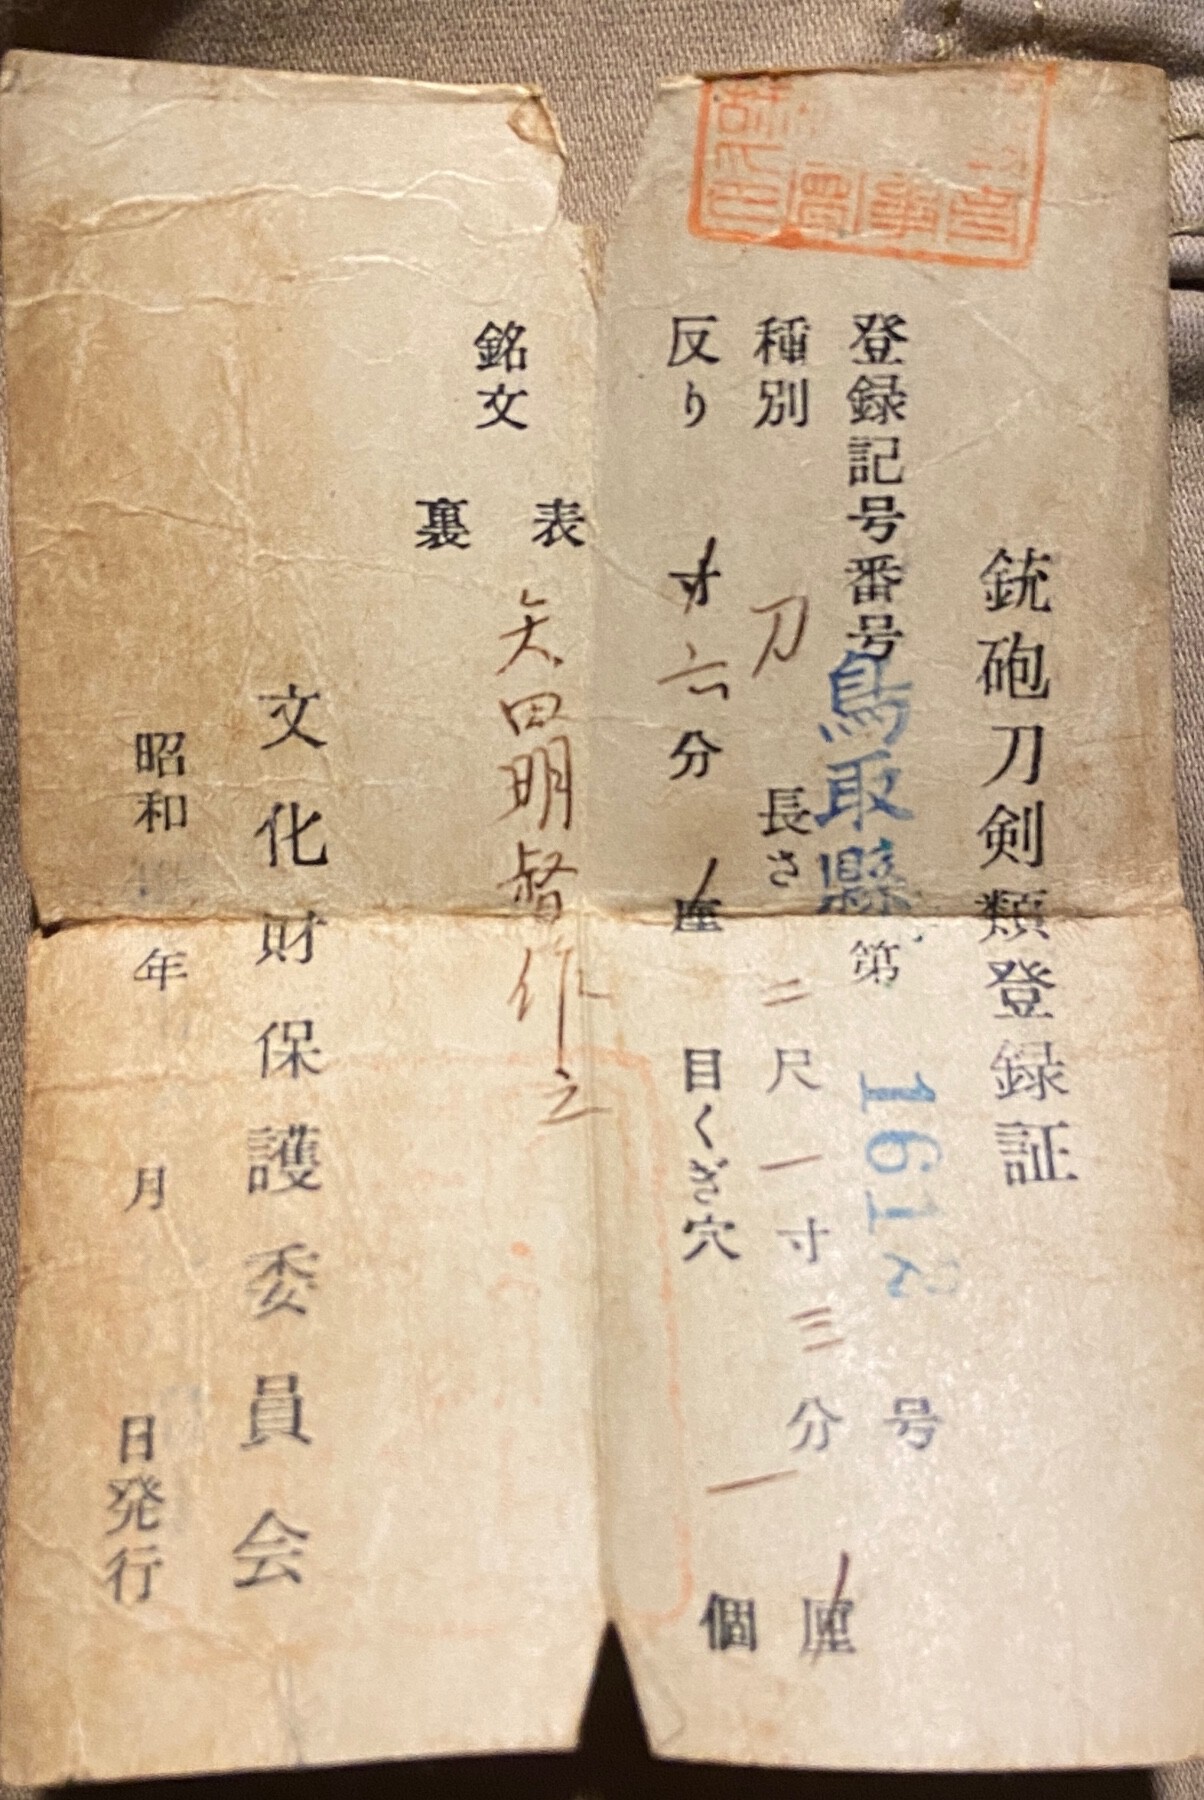 銃砲刀剣類登録証
登録記号番号鳥取縣第1612号
種別 刀 長さ 二尺一寸三分 厘
反り 寸六分 厘 目くぎ穴 一個
銘文
表 矢田明督作之
裏
文化財保護委員会
昭和 年 月 日発行